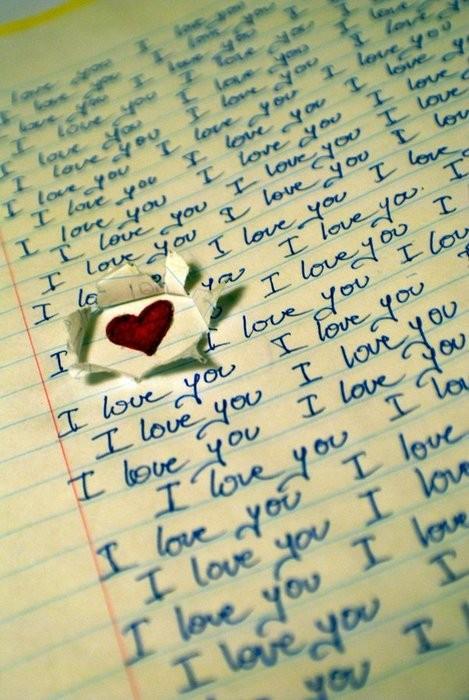 love you I love you I
I love you I love you I love
I love you I love you I love
I love you I love you I love
I love you I love you I love you
I love you I love you I love
I love you I love you I love
I love you I love you I love
I love you I love you I love
I lo you I love you I
I I love you I
I love you I love you
I love you I love you
I love you I love you
I love you I
I love you I love
I love you I love
I love you I love
I love you I
you I